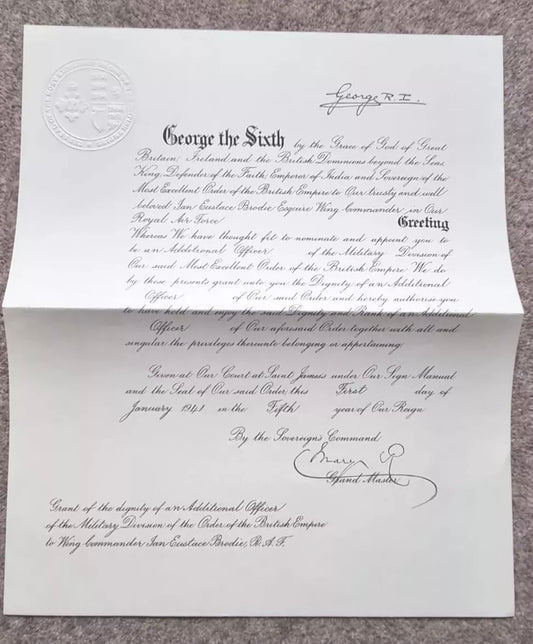 George R.I.
George the Sixth by the Grace of God of Great
Britain, Ireland and the British Dominions beyond the Seas
King, Defender of the Faith, Emperor of India and Sovereign of the
Most Excellent Order of the British Empire to Our trusty and well
beloved Ian Eustace Brodie Esquire Wing Commander in Our
Royal Air Force Greeting
Whereas We have thought fit to nominate and appoint you to
be an Additional Officer of the Military Division of
Our said Most Excellent Order of the British Empire We do
by these presents grant unto you the Dignity of an Additional
Officer of Our said Order and hereby authorise you
to have hold and enjoy the said Dignity and Rank of an Additional
Officer of Our aforesaid Order together with all and
singular the privileges thereunto belonging or appertaining.
Given at Our Court at Saint James's under Our Sign Manual
and the Seal of Our said Order this First day of
January 1941 in the Fifth year of Our Reign
By the Sovereign's Command
Mary R
Grand Master
Grant of the dignity of an Additional Officer
of the Military Division of the Order of the British Empire
to Wing Commander Ian Eustace Brodie, R.A.F.